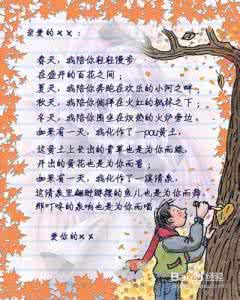 亲爱的××：
春天，我陪你轻轻漫步
在盛开的百花之间；
夏天，我陪你奔跑在欢乐的小河之畔；
秋天，我陪你徜徉在火红的枫林之下；
冬天，我陪你围坐在炽热的火炉旁边。
如果有一天，我化作了一pou黄土，
这黄土上长出的青草也是为你而绿，
开出的黄花也是为你而香；
如果有一天，我化作了一溪清泉，
这清泉里翩翩游摆的鱼儿也是为你而舞，
那叮咚的泉响也是为你而唱。
爱你的××
Baidu经验